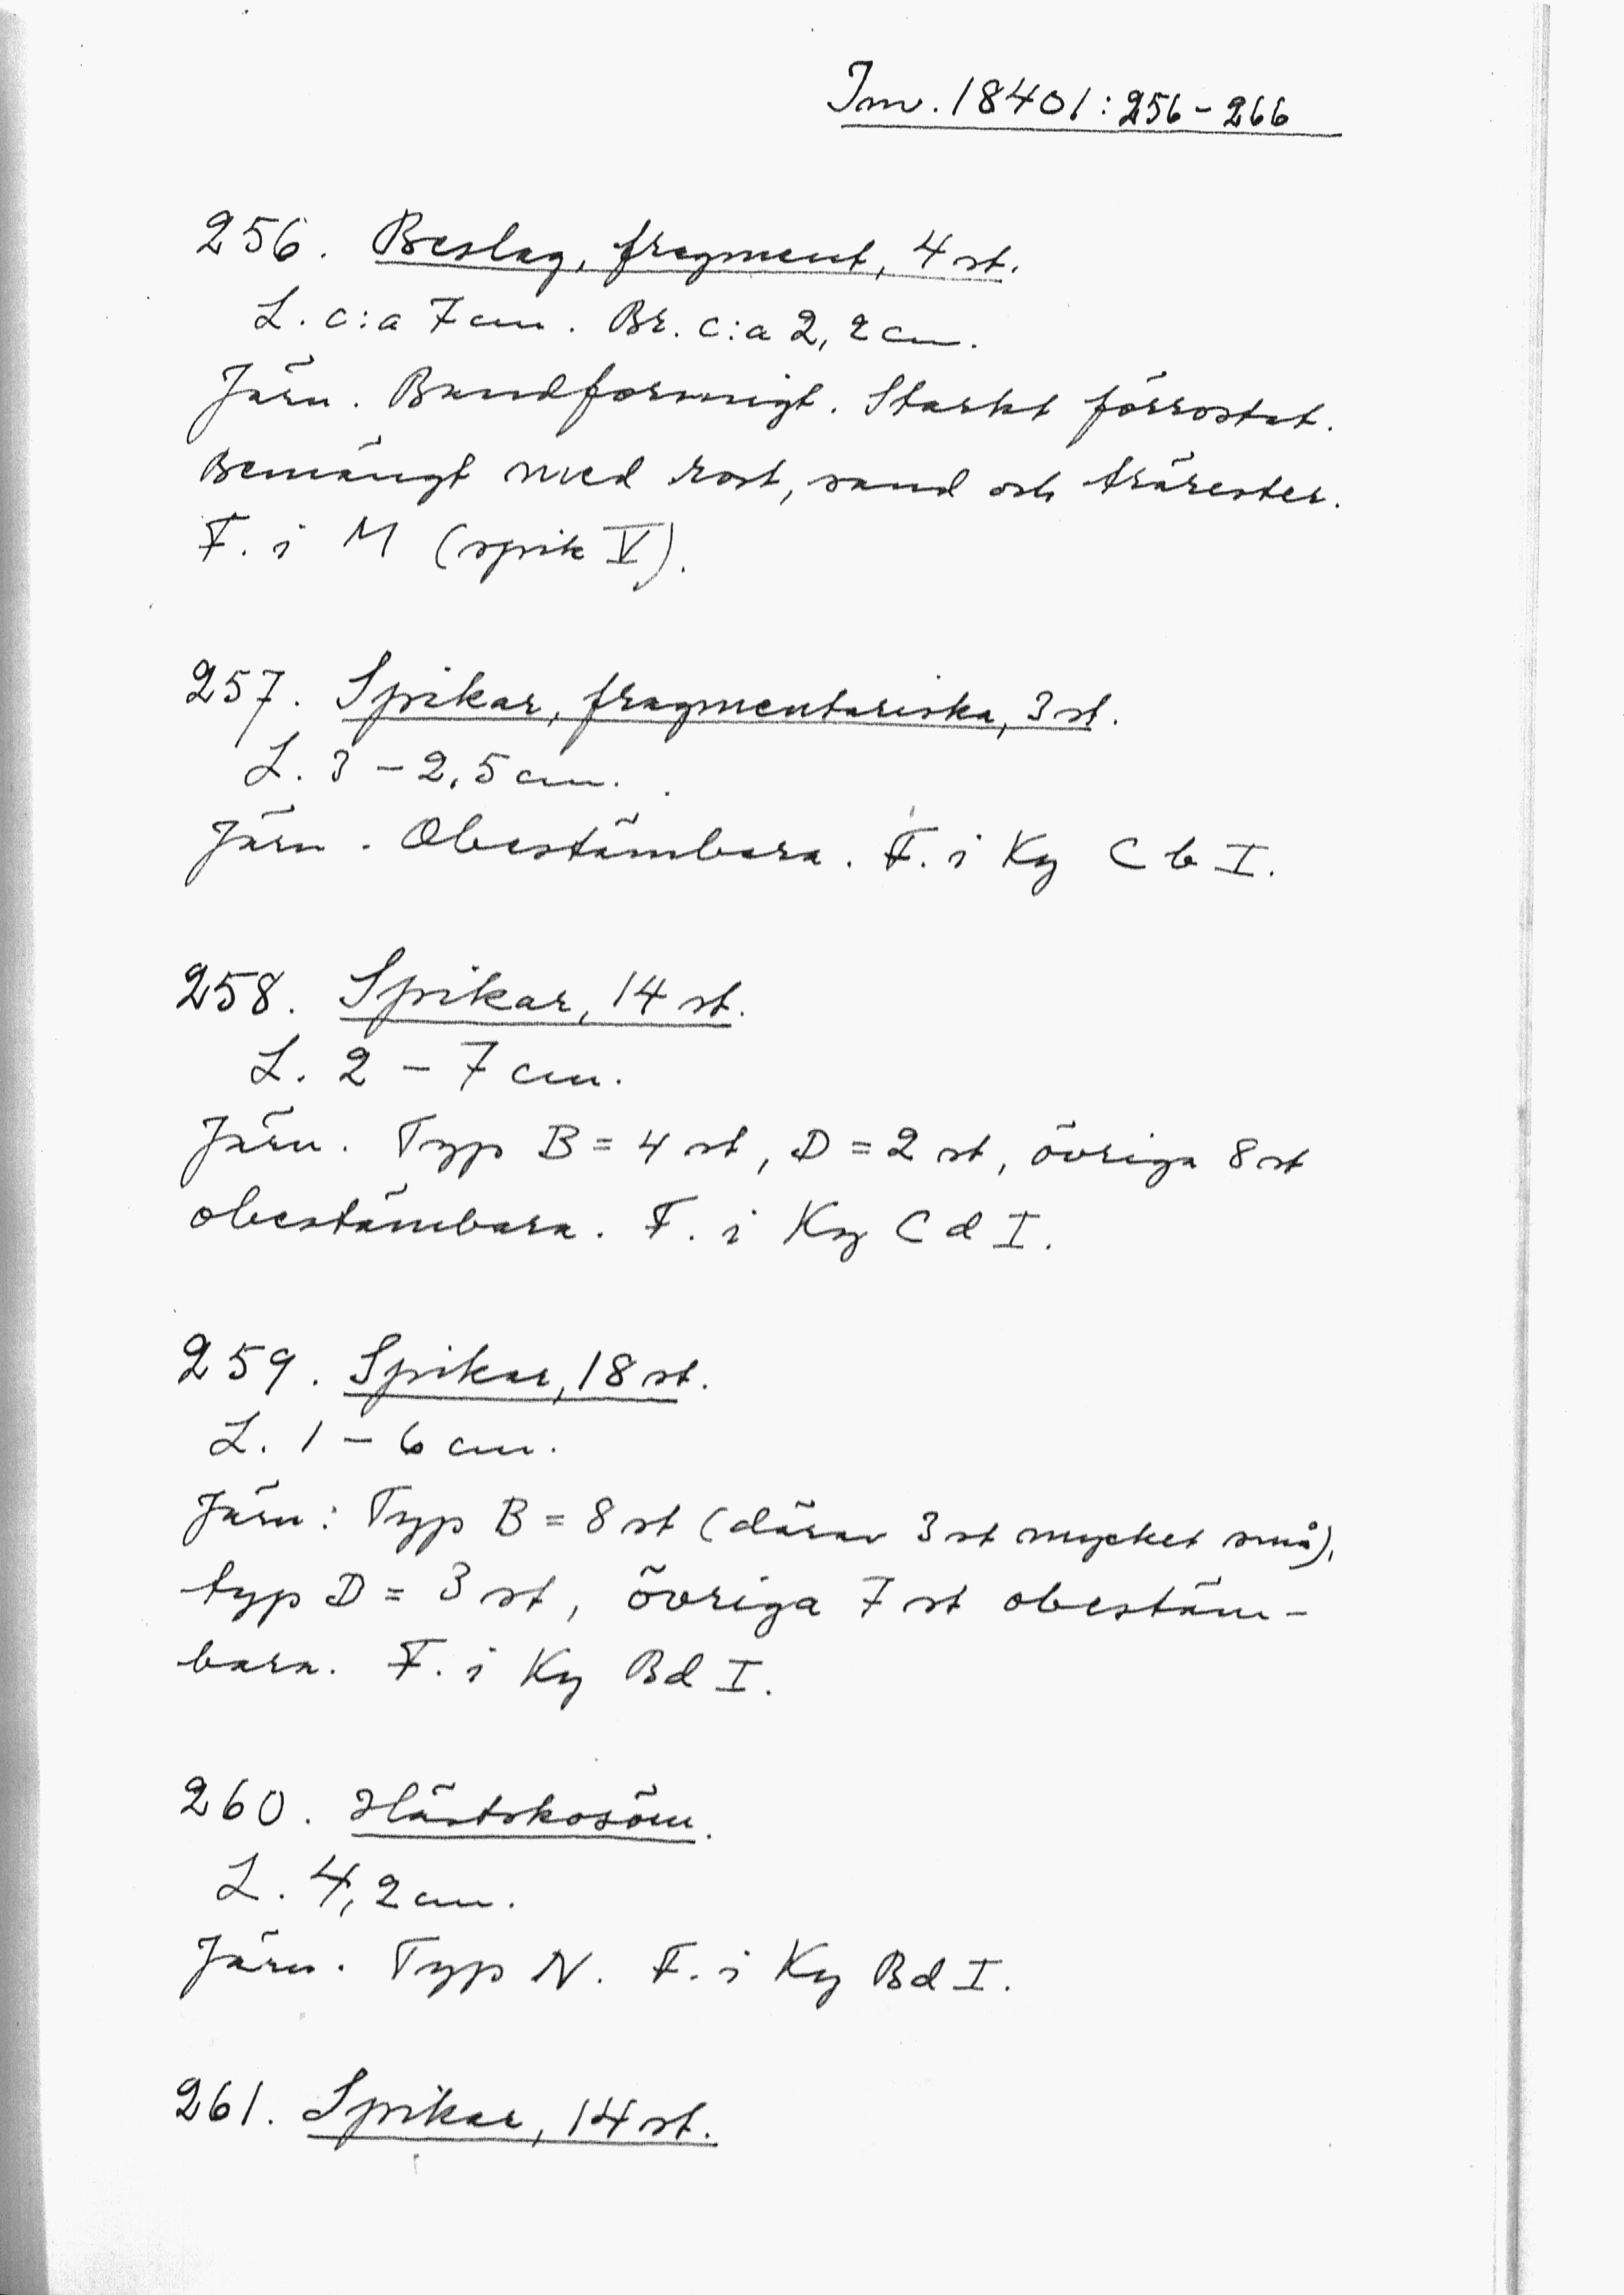 Inv. 18401:256-266
256. Beslag, fragment, 4 st.
L. c:a 7 cm. Br. c:a 2,2 cm.
Järn. Bandformigt. Starkt förrostat.
Bemängt med rost, sand och trärester.
F. i M (spik V).
257. Spikar, fragmentariska, 3 st.
L. 3 - 2,5 cm.
Järn. Obestämbara. F. i Ky C b I.
258. Spikar, 14 st.
L. 2 - 7 cm.
Järn. Typ B = 4 st, D = 2 st, övriga 8 st
obestämbara. F. i Ky C d I.
259. Spikar, 18 st.
L. 1 - 6 cm.
Järn: Typ B = 8 st (därav 3 st mycket små),
typ D = 3 st, övriga 7 st obestäm-
bara. F. i Ky Bd I.
260. Hästskosöm.
L. 4,2 cm.
Järn. Typ N. F. i Ky Bd I.
261. Spikar, 14 st.